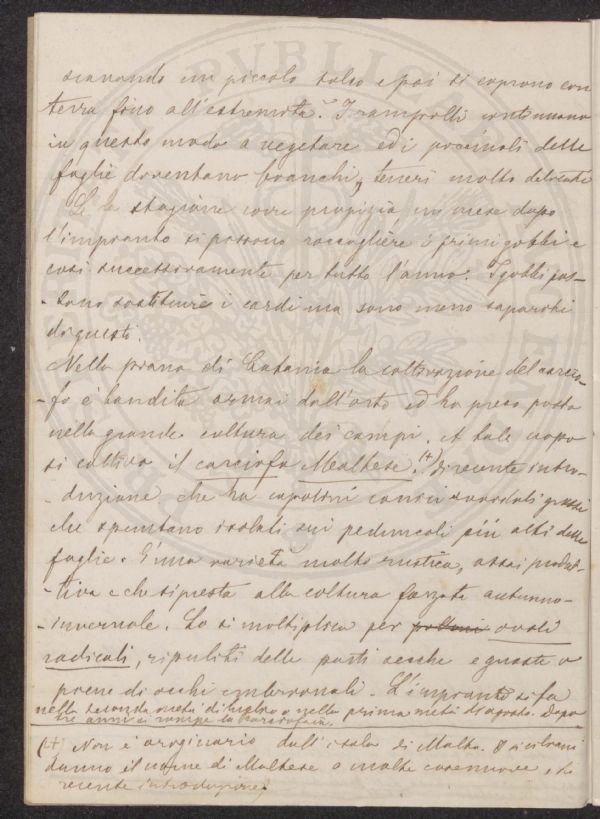 scavando un piccolo solco e poi si coprono con
terra fino all'estremità. I rampolli continuano
in questo modo a vegetare ed i peccinoli delle
foglie doventano bianchi, teneri molto delicati
Se la stagione corre propizia, un mese dopo
l'impianto si possono raccogliere i primi gobbi e
così successivamente per tutto l'anno. I gobbi pos-
-sono sostituire i cardi ma sono meno saporiti
di questi.
Nella piana di Catania la coltivazione del carcio-
-fo è bandita ormai dall'orto ed ha preso posto
nella grande cultura dei campi. A tale uopo
si coltiva il carciofo Maltese. (+) Di recente intro-
-duzione che ha capolini conici grossi
che spuntano isolati sui peduncoli più alti delle
foglie. È una varietà molto rustica, assai produt-
-tiva e che si presta alla coltura forzata autunno-
-invernale. Lo si moltiplica per polloni ovoli
radicali, ripuliti delle parti secche e guaste o
prive di occhi embrionali. L'impianto si fa
nella seconda metà di luglio o nella prima metà di agosto. Dopo
tre anni si rompe la carciofaia.
(+) Non è originario dall'isola di Malta. I siciliani
danno il nome di Maltese a molte cose nuove, di
recente introduzione.